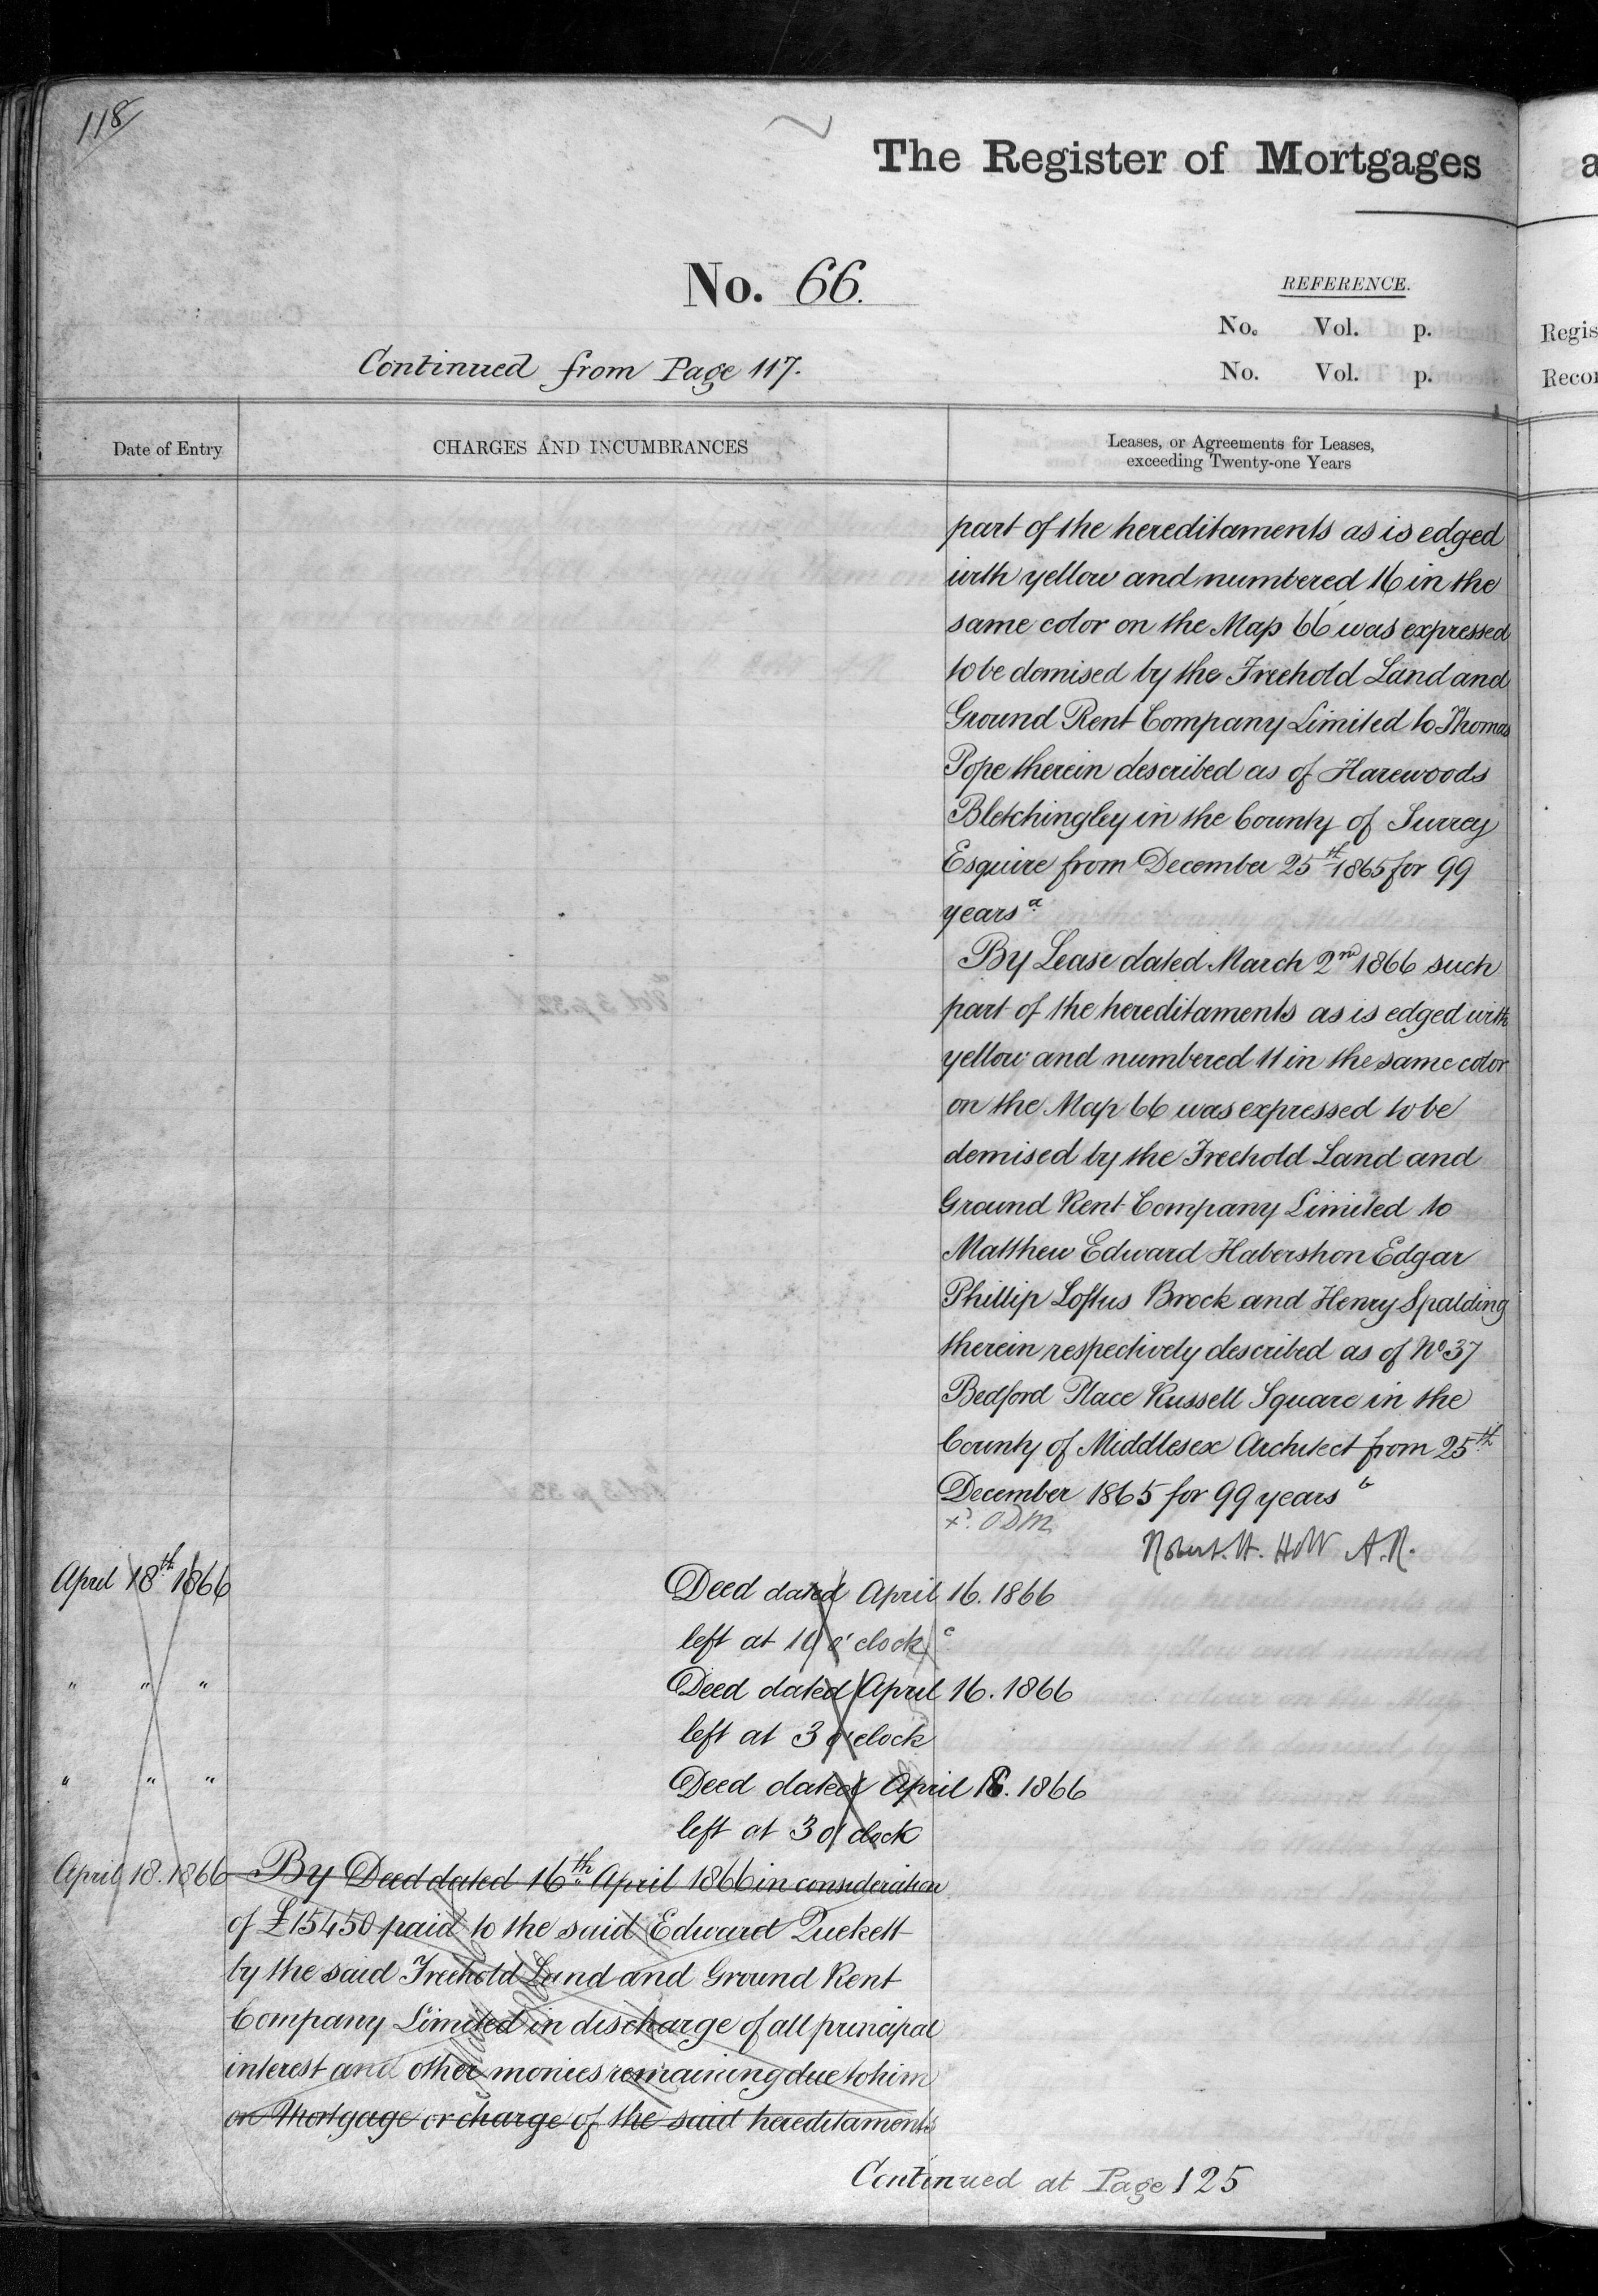 118
The Register of Mortgages
No. 66.
REFERENCE.
No. Vol. p.
No. Vol. p.
Continued from Page 117.
Date of Entry
CHARGES AND INCUMBRANCES
Leases, or Agreements for Leases,
exceeding Twenty-one Years
part of the hereditaments as is edged
with yellow and numbered 16 in the
same color on the Map 66 was expressed
to be demised by the Freehold Land and
Ground Rent Company Limited to Thomas
Pope therein described as of Harewoods
Bletchingley in the County of Surrey
Esquire from December 25th 1865 for 99
years a
By Lease dated March 2nd 1866 such
part of the hereditaments as is edged with
yellow and numbered 11 in the same color
on the Map 66 was expressed to be
demised by the Freehold Land and
Ground Rent Company Limited to
Matthew Edward Habershon Edgar
Phillip Loftus Brock and Henry Spalding
therein respectively described as of No 37
Bedford Place Russell Square in the
County of Middlesex Architect from 25th
December 1865 for 99 years b
Robert. H. Holt A.R.
April 18th 1866 Deed dated April 16. 1866
left at 10 o'clock c
" " " Deed dated April 16. 1866
left at 3 o'clock
" " " Deed dated April 18. 1866
left at 3 o'clock
April 18. 1866 By Deed dated 16th April 1866 in consideration
of £15450 paid to the said Edward Quekett
by the said Freehold Land and Ground Rent
Company Limited in discharge of all principal
interest and other monies remaining due to him
on Mortgage or charge of the said hereditaments
Continued at Page 125
a
Regis
Recor